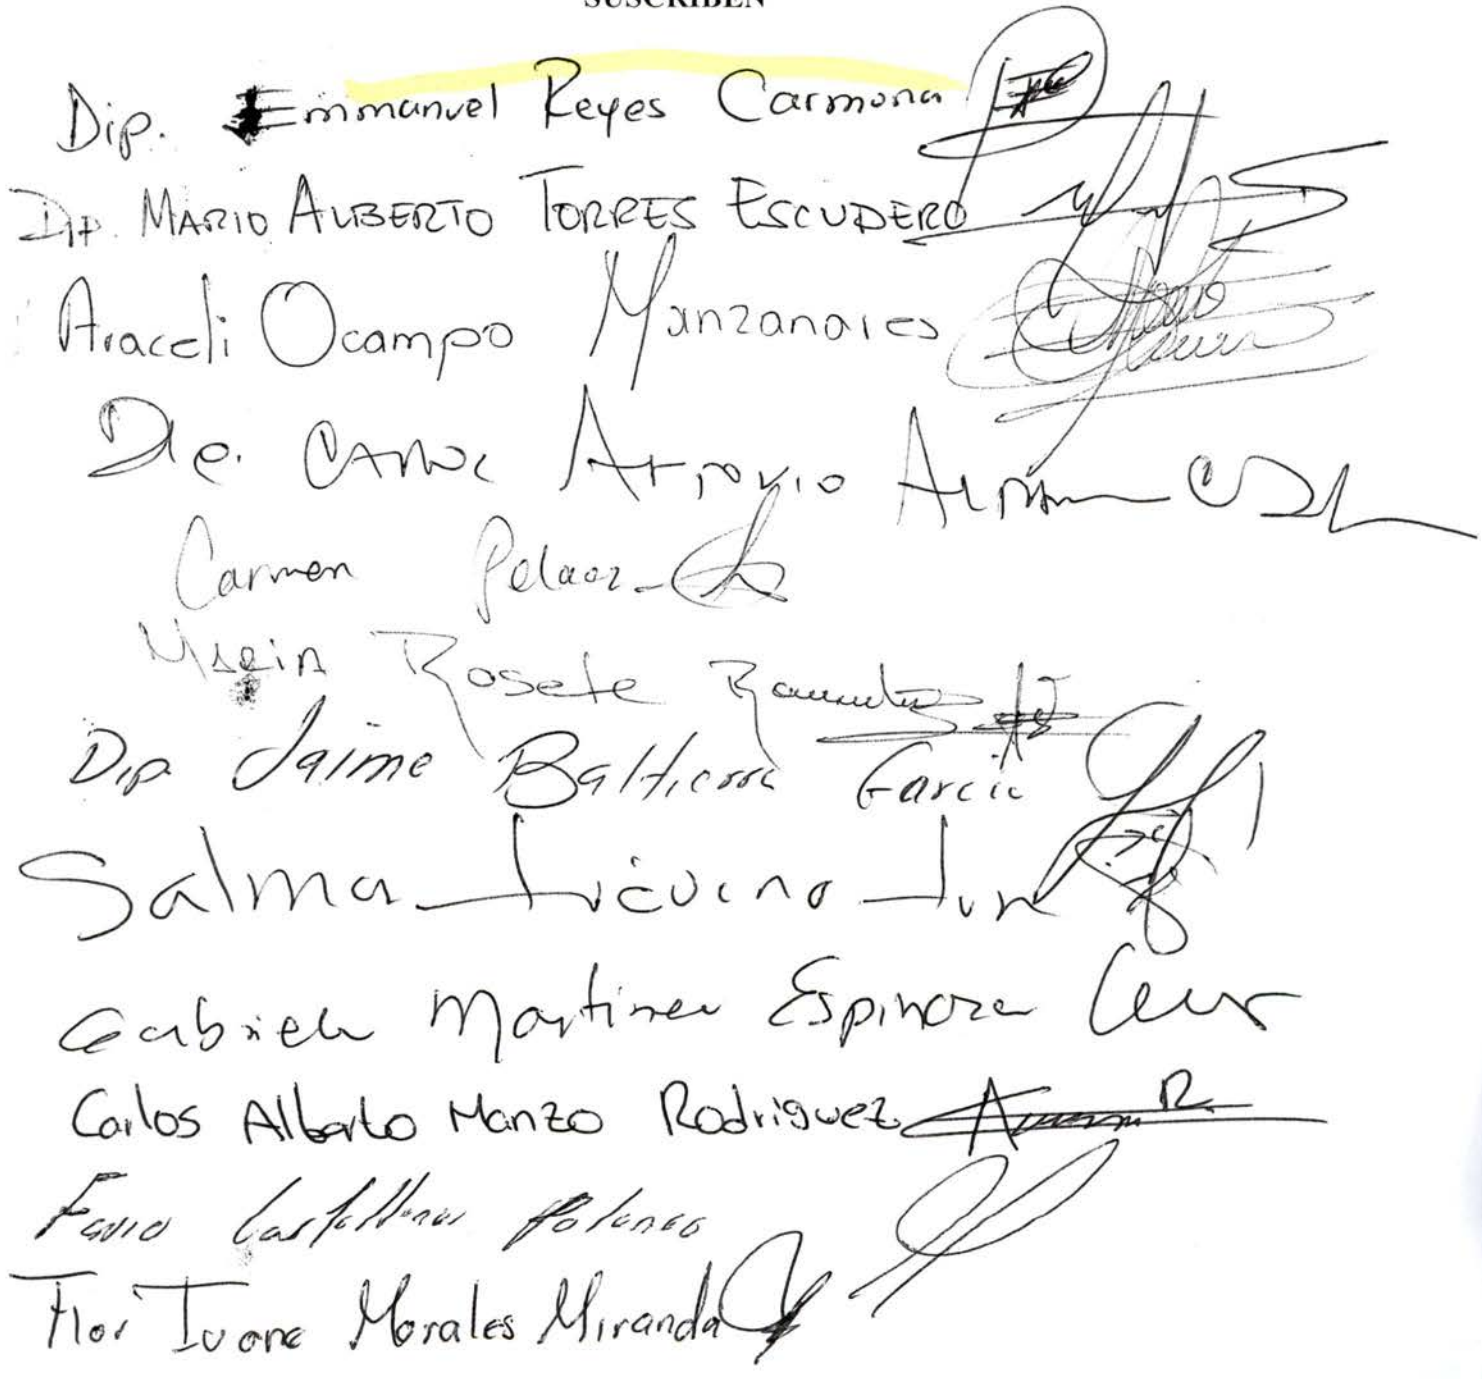 SUSCRIBEN
Dip. Emmanuel Reyes Carmona
Dip. MARIO ALBERTO TORRES ESCUDERO
Araceli Ocampo Manzanares
Dip. Antonio
Carmen Pelaez
Rosete
Dip Jaime Baltierra García
Salma
Gabriela Martinez Espinoza
Carlos Alberto Manzo Rodriguez
Favio Castellanos Polanco
Flor Ivone Morales Miranda